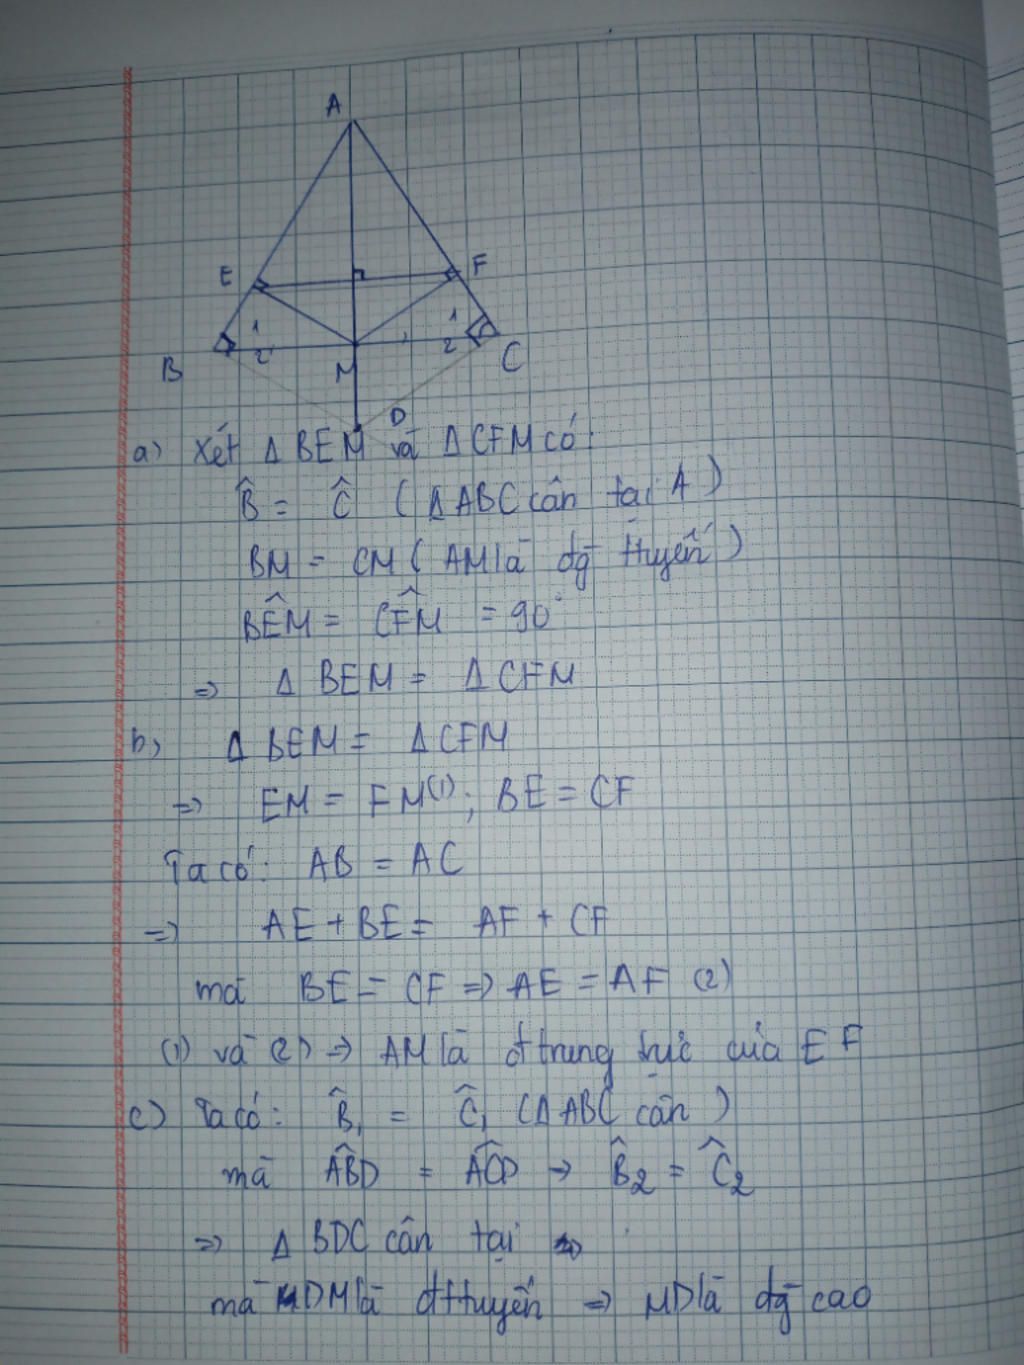 A
E
F
1
1
2
2
B
M
C
D
a) Xét Δ BEM và Δ CFM có:
B̂ = Ĉ (Δ ABC cân tại A)
BM = CM (AM là đg trtuyến)
BÊM = CF̂M = 90°
=> Δ BEM = Δ CFM
b) Δ BEM = Δ CFM
=> EM = FM (1); BE = CF
Ta có: AB = AC
=> AE + BE = AF + CF
mà BE = CF => AE = AF (2)
(1) và (2) => AM là đ trung trực của EF
c) Ta có: B̂₁ = Ĉ₁ (Δ ABC cân)
mà AB̂D = AĈD → B̂₂ = Ĉ₂
=> Δ BDC cân tại D
mà DM là đ trtuyến => MD là đg cao